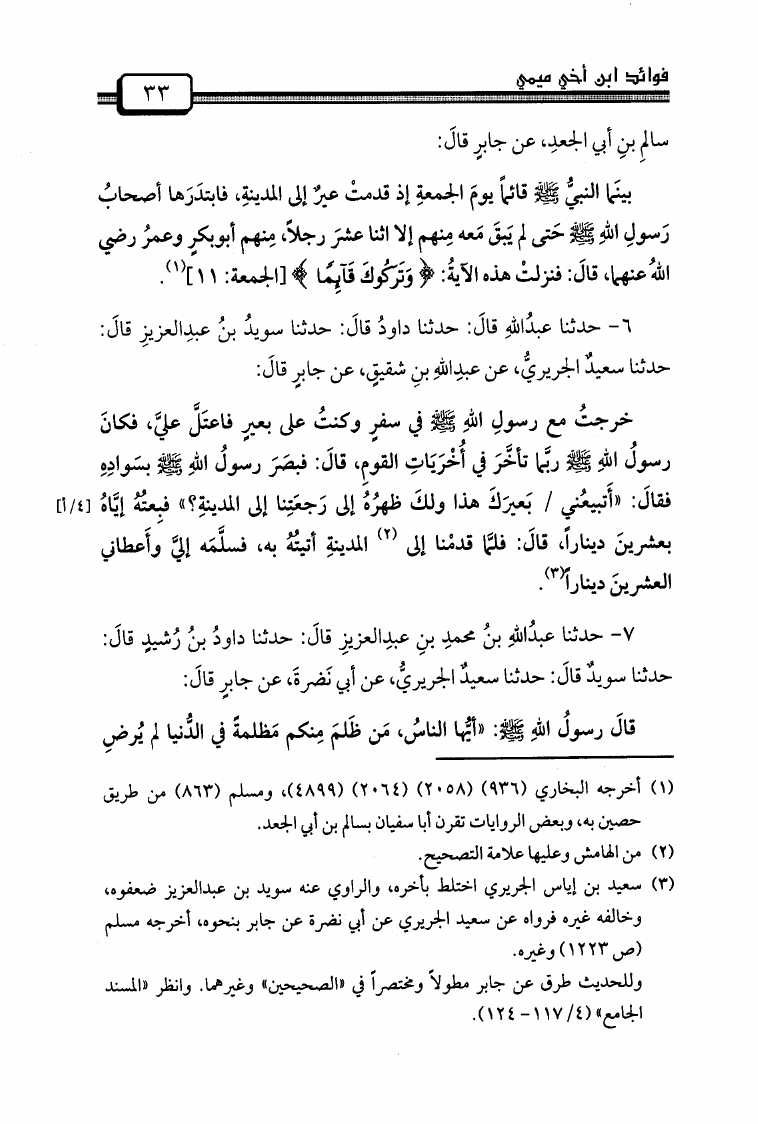 فوائد ابن أخي ميمي
٣٣
سالمِ بنِ أبي الجعدِ، عن جابرٍ قالَ:
بينَما النبيُّ ﷺ قائماً يومَ الجمعةِ إذ قدمتْ عيرٌ إلى المدينةِ، فابتدَرَها أصحابُ
رَسولِ اللهِ ﷺ حَتى لم يَبقَ مَعه مِنهم إلا اثنا عشرَ رجلاً، مِنهم أبوبكرٍ وعمرُ رضي
اللهُ عنهما، قالَ: فنزلتْ هذه الآيةُ: ﴿ وَتَرَكُوكَ قَآئِمًا ﴾ [الجمعة: ١١](١).
٦- حدثنا عبدُاللهِ قالَ: حدثنا داودُ قالَ: حدثنا سويدُ بنُ عبدِالعزيزِ قالَ:
حدثنا سعيدٌ الجريريُّ، عن عبدِاللهِ بنِ شقيقٍ، عن جابرٍ قالَ:
خرجتُ مع رسولِ اللهِ ﷺ في سفرٍ وكنتُ على بعيرٍ فاعتَلَّ عليَّ، فكانَ
رسولُ اللهِ ﷺ ربَّما تأخَّرَ في أُخْرَيَاتِ القومِ، قالَ: فبصَرَ رسولُ اللهِ ﷺ بسَوادِهِ
فقالَ: «أَتبيعُني / بَعيرَكَ هذا ولكَ ظهرُهُ إلى رَجعَتِنا إلى المدينةِ؟» فبِعتُهُ إيَّاهُ [٤/أ]
بعشرينَ ديناراً، قالَ: فلمَّا قدمْنا إلى (٢) المدينةِ أتيتُهُ به، فسلَّمَه إليَّ وأَعطاني
العشرينَ ديناراً(٣).
٧- حدثنا عبدُاللهِ بنُ محمدِ بنِ عبدِالعزيزِ قالَ: حدثنا داودُ بنُ رُشيدٍ قالَ:
حدثنا سويدٌ قالَ: حدثنا سعيدٌ الجريريُّ، عن أبي نَضرةَ، عن جابرٍ قالَ:
قالَ رسولُ اللهِ ﷺ: «أيُّها الناسُ، مَن ظَلمَ مِنكم مَظلمةً في الدُّنيا لم يُرضِ
(١) أخرجه البخاري (٩٣٦) (٢٠٥٨) (٢٠٦٤) (٤٨٩٩)، ومسلم (٨٦٣) من طريق
حصين به، وبعض الروايات تقرن أبا سفيان بسالم بن أبي الجعد.
(٢) من الهامش وعليها علامة التصحيح.
(٣) سعيد بن إياس الجريري اختلط بأخره، والراوي عنه سويد بن عبدالعزيز ضعفوه،
وخالفه غيره فرواه عن سعيد الجريري عن أبي نضرة عن جابر بنحوه، أخرجه مسلم
(ص ١٢٢٣) وغيره.
وللحديث طرق عن جابر مطولاً ومختصراً في «الصحيحين» وغيرهما. وانظر «المسند
الجامع» (٤/ ١١٧ - ١٢٤).